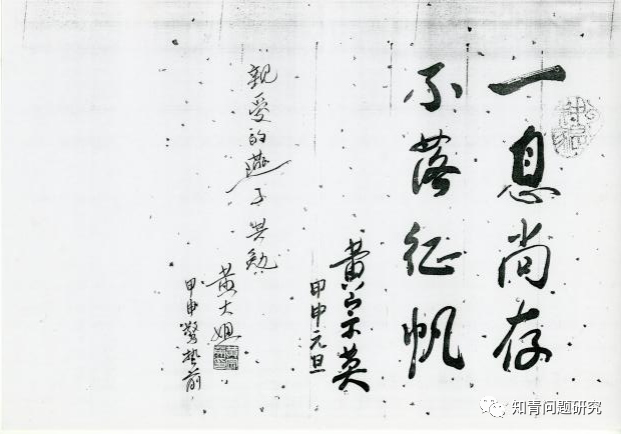 一息尚存
不落征帆
黄宗英
甲申元旦
親爱的燕子共勉
黄大姐
甲申驚蛰前
知青问题研究